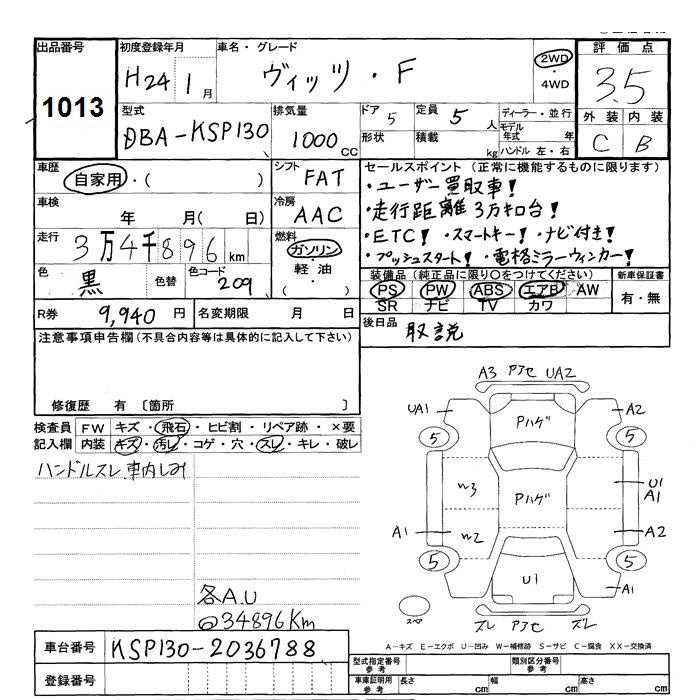 出品番号
1013
初度登録年月
H24 1月
車名・グレード
ヴィッツ・F
2WD
・
4WD
評価点
3.5
外装 内装
C B
型式
DBA-KSP130
排気量
1000 CC
ドア 5
定員 5 人
形状
積載 kg
ディーラー・並行
モデル年式 年
ハンドル 左・右
車歴
自家用・( )
シフト
FAT
セールスポイント (正常に機能するものに限ります)
・ユーザー買取車!
・走行距離3万キロ台!
・ETC! ・スマートキー! ・ナビ付き!
・プッシュスタート! ・電格ミラーウィンカー!
車検
年 月( 日)
冷房
AAC
走行
3万4千896km
燃料
ガソリン
・
軽油
( )
色
黒
色替
色コード
209
装備品 (純正品に限り○をつけてください)
PS PW ABS エアB AW
SR ナビ TV カワ
新車保証書
有・無
R券 9,940 円
名変期限 月 日
後日品 取説
注意事項申告欄 (不具合内容等は具体的に記入して下さい)
修復歴 有 〔箇所 〕
検査員記入欄
FW キズ・飛石・ヒビ割・リペア跡・×要
内装 キズ・汚レ・コゲ・穴・スレ・キレ・破レ
ハンドルスレ、車内しみ
各A.U
@34896Km
A3 アアセ UA2
UA1
A2
Pハゲ
5
5
W3
Pハゲ
U1
A1
A1
W2
A2
5
5
U1
A1
スペア
ズレ アアセ ズレ
A-キズ E-エクボ U-凹み W-補修跡 S-サビ C-腐食 XX-交換済
車台番号 KSP130-2036788
登録番号
型式指定番号 参考
類別区分番号 参考
車庫証明用 参考
長さ cm
幅 cm
高さ cm